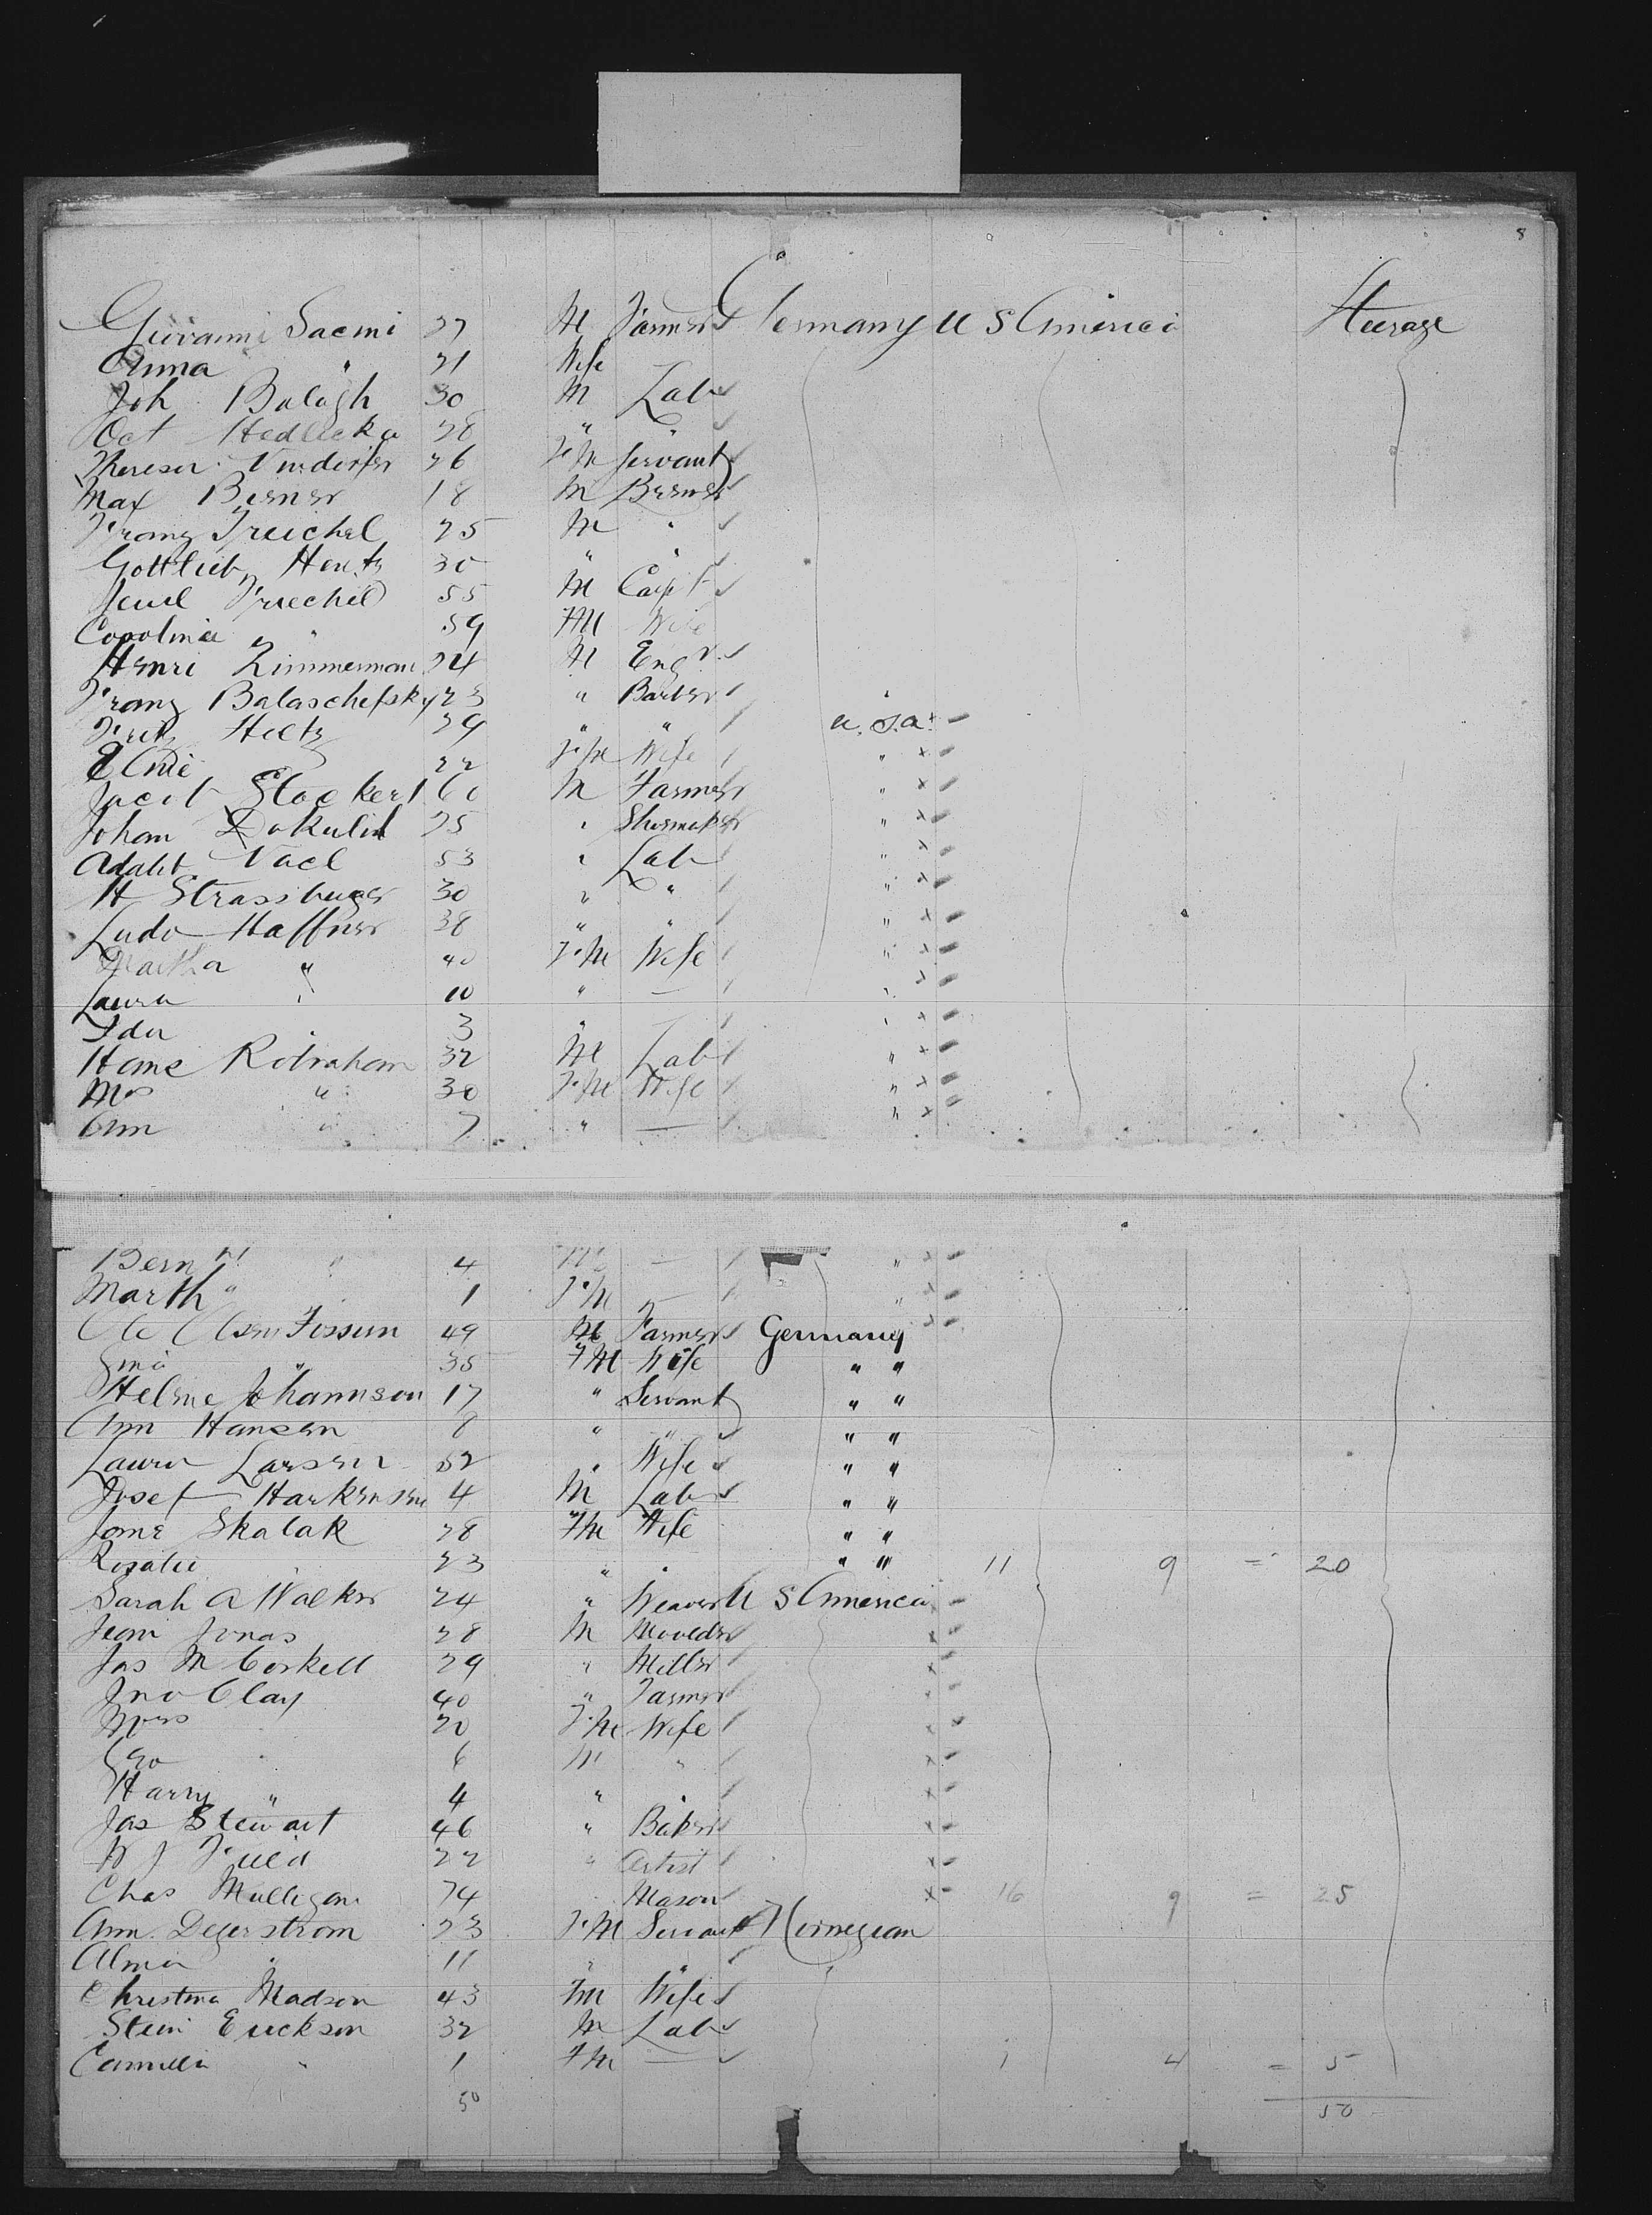 8
Giovanni Sacmi 27 M Farmer Germany U S America Steerage
Anna " 21 Wife
Joh Balogh 30 M Lab
Oct Hedlicka 28 " "
Theresa 26 FM Servant
Max Berner 18 M Brewer
Franz Treichel 25 M "
Gottlieb Hentz 30 " "
Treichel 55 M Capt
Carolina " 59 FM Wife
Henri Zimmerman 24 M Engr
Franz Balaschefsky 23 " Barber
Fritz Hiltz 29 " " U.S.A.
22 FM Wife "
Jacob Stockert 60 M Farmer "
Johan Dokulil 25 " Shoemaker "
Adalbt Vacl 53 " Lab "
H Strassburger 30 " " "
Ludo Haffner 38 " " "
Martha " 40 FM Wife "
Laura " 10 " — "
Ida 3 " — "
Hans Robraham 32 M Lab "
Mrs " 30 FM Wife "
Ann " 7 " — "
Bern " 4 M — "
Marth " 1 FM — "
Ole Olsen Fossum 49 M Farmer Germany
" 35 FM Wife " "
Helene Johannson 17 " Servant " "
Ann Hansen 8 " " " "
Laura Larsen 52 " Wife " "
Josef 4 M Lab " "
Skalak 28 FM Wife " "
Rosalie 23 " " " " 11 9 = 20
Sarah A Walker 24 " Weaver U S America
Jean Jonas 28 M Moulder
Jas McCorkell 29 " Miller
Jno Clay 40 " Farmer
Mrs 20 FM Wife
Geo 6 M "
Harry " 4 " "
Jas Stewart 46 " Baker
22 " Artist
Chas Mulligan 74 Mason 16 9 = 25
Ann Degerstrom 23 FM Servant Norwegian
Alma " 11 " "
Christina Madson 43 FM Wife
Erickson 32 M Lab
Camilla " 1 FM — 1 4 = 5
50 50